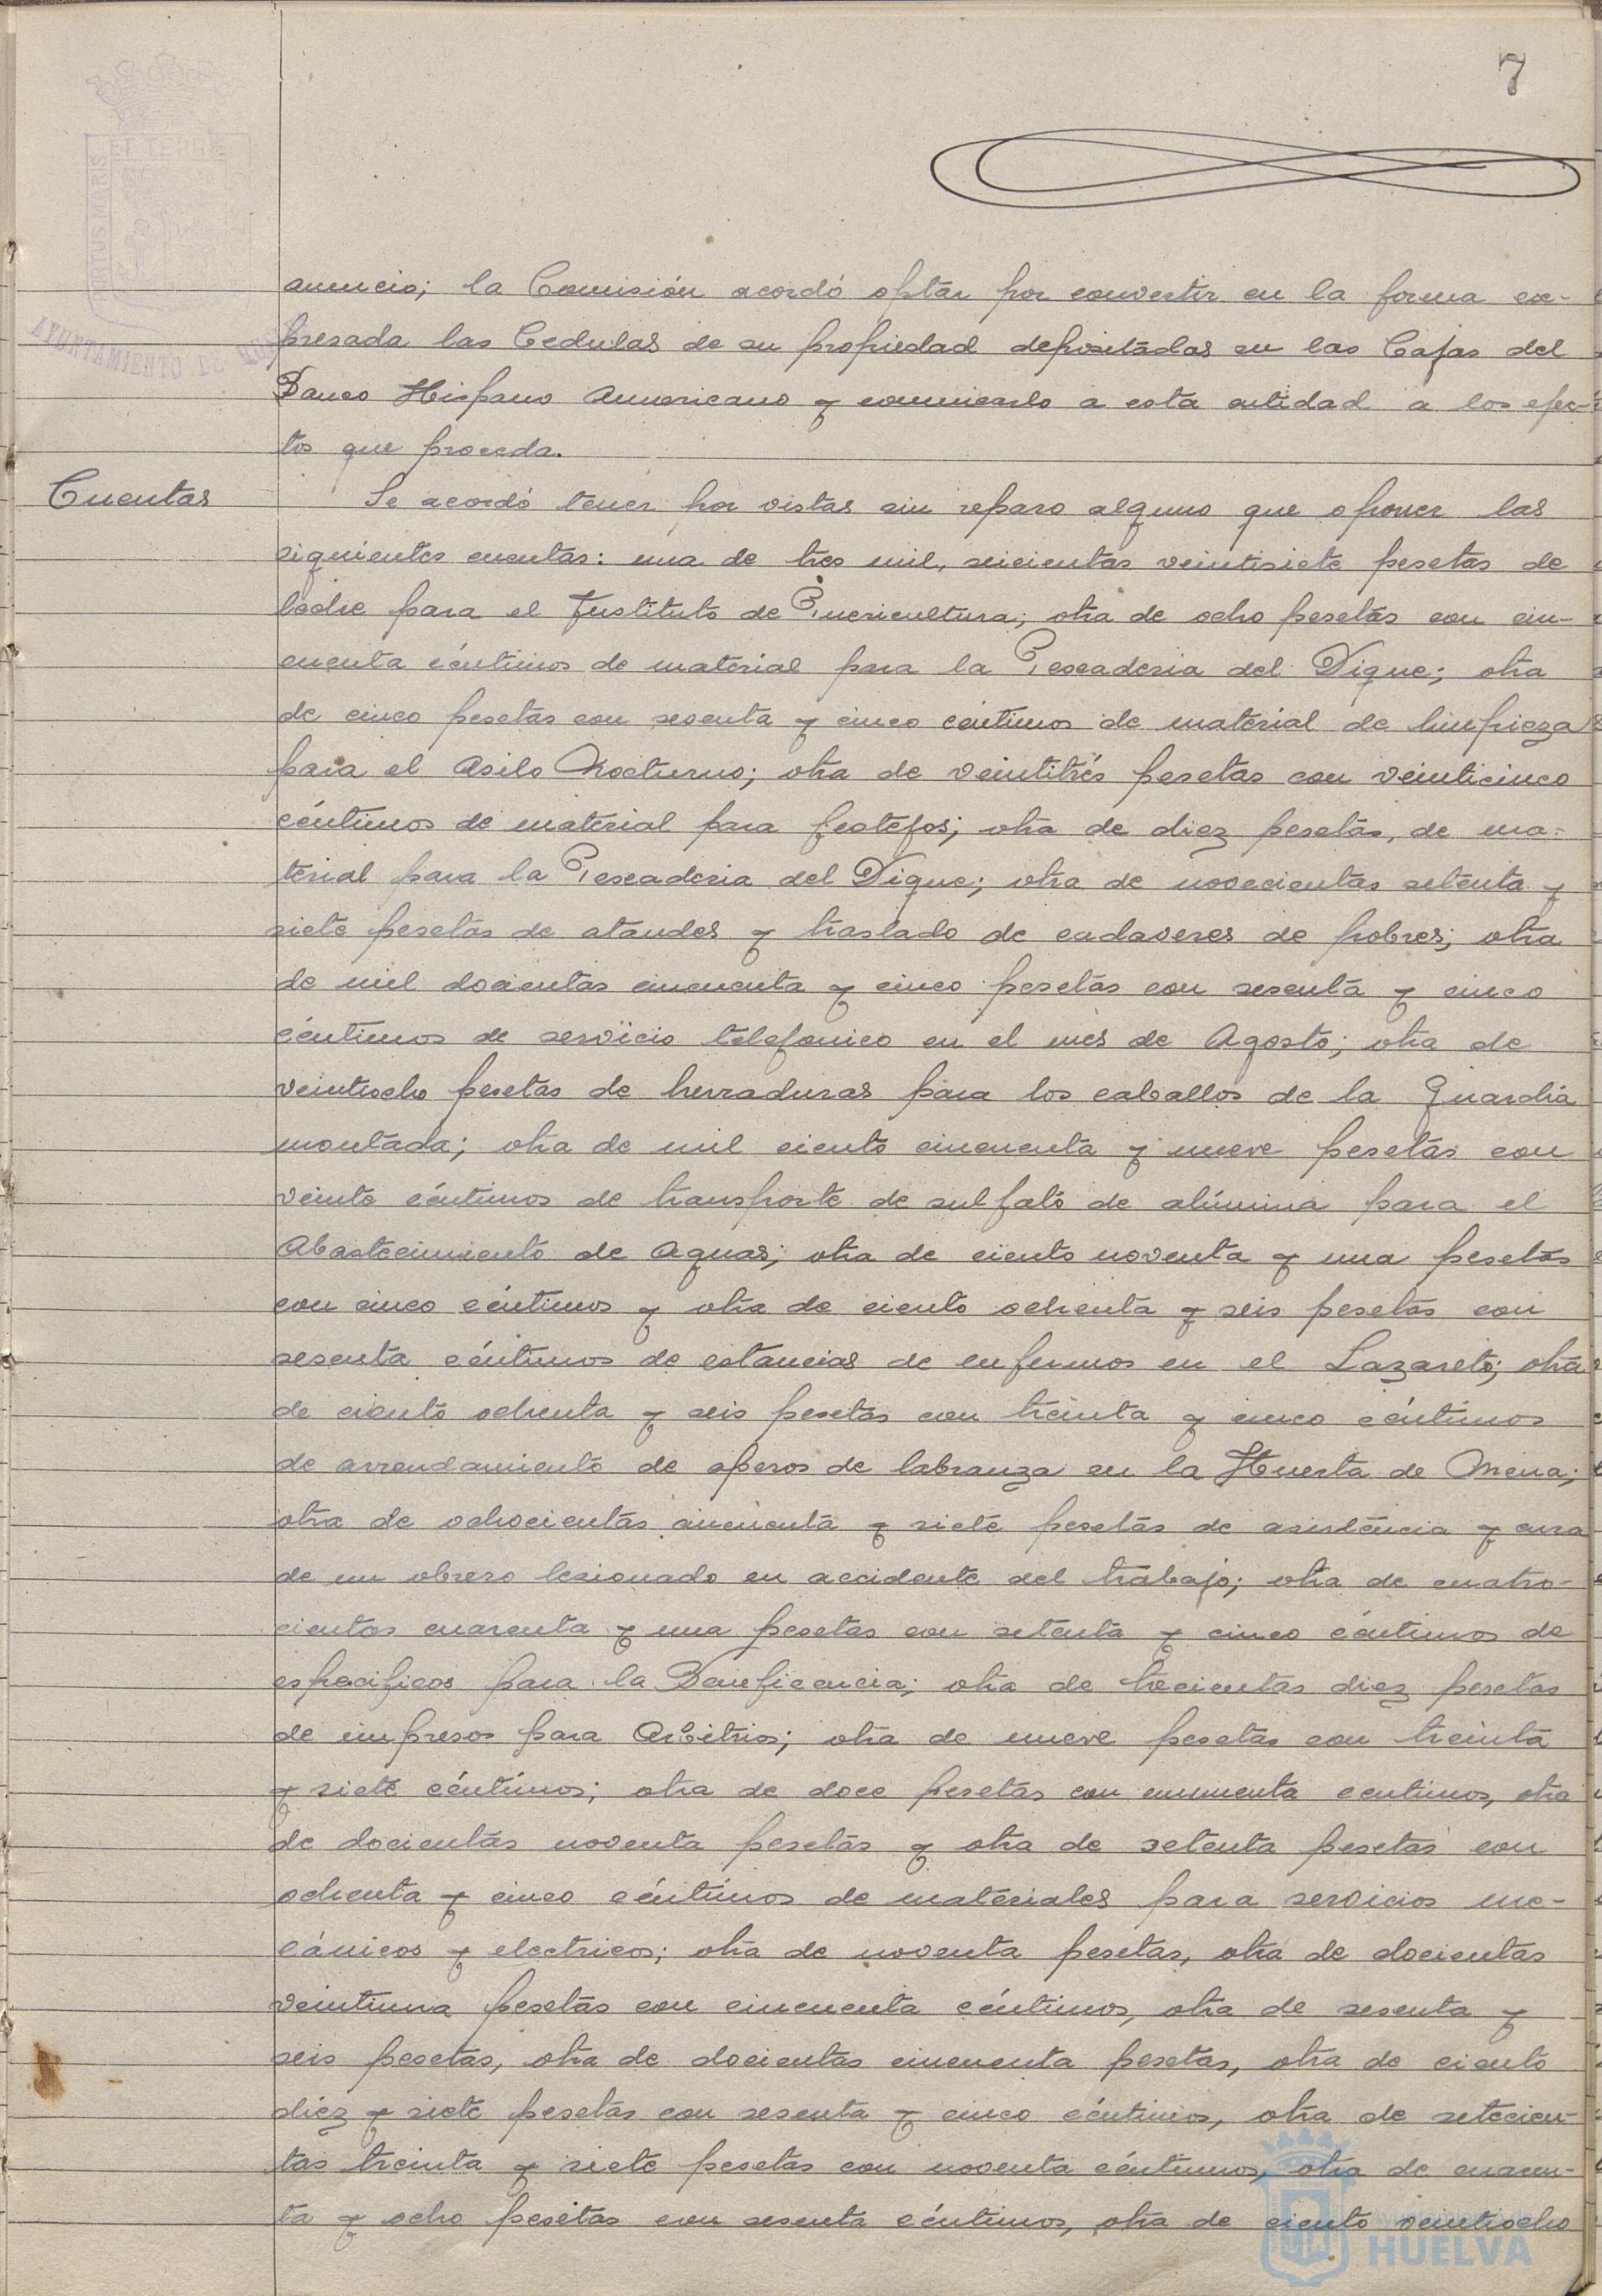 7
ET TERRÆ
PORTUS MARIS
AYUNTAMIENTO DE
anuncio; la Comisión acordó optar por convertir en la forma ex-
presada las Cedulas de su propiedad depositadas en las Cajas del
Banco Hispano Americano y comunicarlo a esta entidad a los efec-
tos que proceda.
Cuentas
Se acordó tener por vistas sin reparo alguno que oponer las
siguientes cuentas: una de tres mil, seicientas veintisiete pesetas de
leche para el Instituto de Puericultura; otra de ocho pesetas con cin-
cuenta céntimos de material para la Pescaderia del Dique; otra
de cinco pesetas con sesenta y cinco céntimos de material de limpieza
para el Asilo Nocturno; otra de veintitrés pesetas con veinticinco
céntimos de material para festejos; otra de diez pesetas, de ma-
terial para la Pescaderia del Dique; otra de novecientas setenta y
siete pesetas de ataudes y traslado de cadaveres de pobres; otra
de mil docientas cincuenta y cinco pesetas con sesenta y cinco
céntimos de servicio telefonico en el mes de Agosto; otra de
veintiocho pesetas de herraduras para los caballos de la Guardia
montada; otra de mil ciento cincuenta y nueve pesetas con
veinte céntimos de transporte de sulfato de alúmina para el
Abastecimiento de Aguas; otra de ciento noventa y una pesetas
con cinco céntimos y otra de ciento ochenta y seis pesetas con
sesenta céntimos de estancias de enfermos en el Lazareto; otra
de ciento ochenta y seis pesetas con treinta y cinco céntimos
de arrendamiento de aperos de labranza en la Huerta de Mena;
otra de ochocientas cincuenta y siete pesetas de asistencia y cura
de un obrero lesionado en accidente del trabajo; otra de cuatro-
cientas cuarenta y una pesetas con setenta y cinco céntimos de
especificos para la Beneficencia; otra de trecientas diez pesetas
de impresos para Arbitrios; otra de nueve pesetas con treinta
y siete céntimos; otra de doce pesetas con cincuenta centimos, otra
de docientas noventa pesetas y otra de setenta pesetas con
ochenta y cinco céntimos de materiales para servicios me-
cánicos y electricos; otra de noventa pesetas, otra de docientas
veintiuna pesetas con cincuenta céntimos, otra de sesenta y
seis pesetas, otra de docientas cincuenta pesetas, otra de ciento
diez y siete pesetas con sesenta y cinco céntimos, otra de setecien-
tas treinta y siete pesetas con noventa céntimos, otra de cuaren-
ta y ocho pesetas con sesenta céntimos, otra de ciento veintiocho
HUELVA